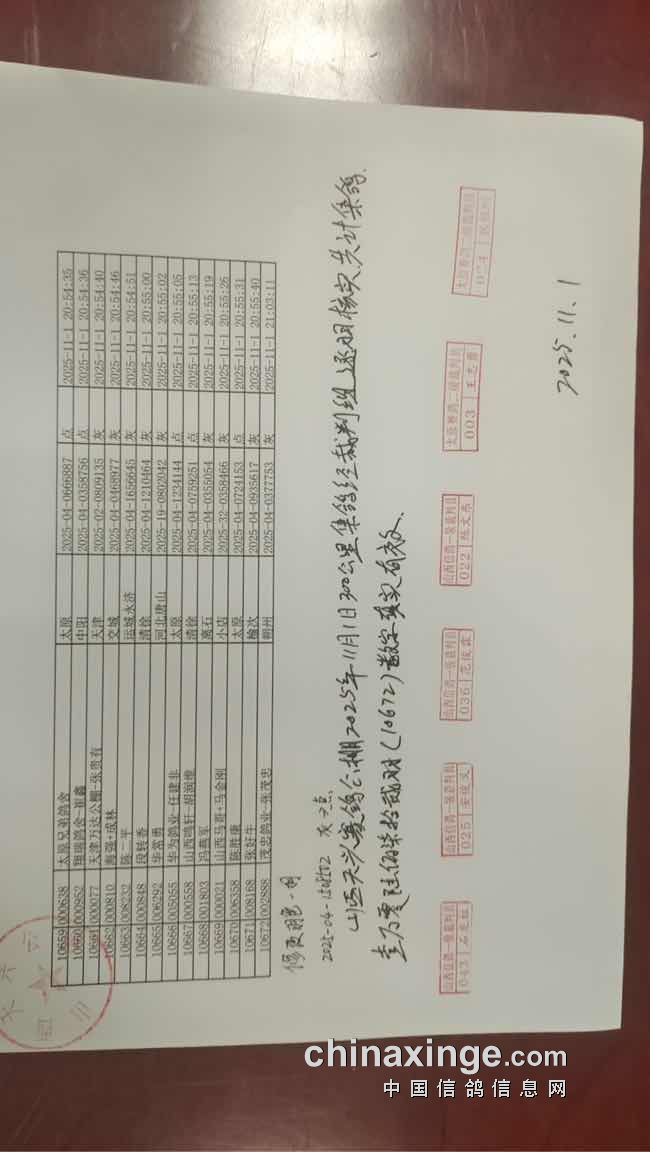 10659 000638 太原兄弟鸽舍 太原 2025-04-0666887 点 2025-11-1 20:54:35
10660 000952 翔瑞鸽舍-崔鑫 中阳 2025-04-0358756 点 2025-11-1 20:54:36
10661 000077 天津万达公棚-张贵有 天津 2025-02-0809135 灰 2025-11-1 20:54:40
10662 000810 海强+成林 交城 2025-04-0468977 灰 2025-11-1 20:54:46
10663 008232 陈二平 运城永济 2025-04-1656645 灰 2025-11-1 20:54:51
10664 000848 段转香 清徐 2025-04-1210464 灰 2025-11-1 20:55:00
10665 006292 华常勇 河北唐山 2025-19-0802042 灰 2025-11-1 20:55:02
10666 005055 华为鸽业-任建非 太原 2025-04-1234144 点 2025-11-1 20:55:05
10667 000558 山西鸣轩-胡润维 清徐 2025-04-0759251 点 2025-11-1 20:55:13
10668 001803 冯燕军 离石 2025-04-0355054 灰 2025-11-1 20:55:19
10669 000021 山西马哥+马金刚 小店 2025-32-0358466 灰 2025-11-1 20:55:26
10670 006358 陈胜康 太原 2025-04-0724153 点 2025-11-1 20:55:31
10671 008168 张好牛 榆次 2025-04-0935617 灰 2025-11-1 20:55:40
10672 002888 茂忠鸽业-张茂忠 朔州 2025-04-0377753 灰 2025-11-1 21:03:11
修改羽色一羽
山西天兴赛鸽公棚2025年11月1日300公里集鸽经裁判组逐羽核实共计集鸽
壹万零陆佰柒拾贰羽(10672)数字真实有效.
山西信鸽一级裁判员
043
山西信鸽一级裁判员
025 安俊文
山西信鸽一级裁判员
036 范俊霖
山西信鸽一级裁判员
022 陈文帝
太原赛鸽二级裁判员
003
太原赛鸽一级裁判员
2025.11.1
chinaxinge.com
中国信鸽信息网